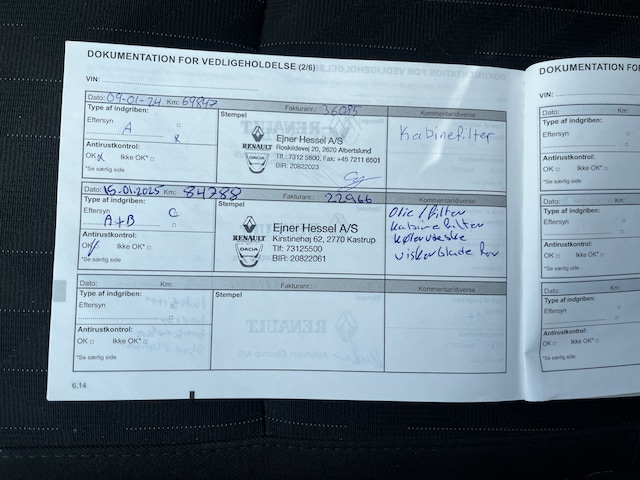 DOKUMENTATION FOR VEDLIGEHOLDELSE (2/6)
VIN:
Dato: 09-01-24 Km: 69847 Fakturanr.: 36085
Type af indgriben: Stempel Kommentar/diverse
Eftersyn
A
Kabinefilter
RENAULT
DACIA
Ejner Hessel A/S
Roskildevej 20, 2620 Albertslund
Tlf.: 7312 5800, Fax: +45 7211 6501
BIR: 20822023
Antirustkontrol:
OK x Ikke OK*
*Se særlig side
Dato: 15.01.2025 Km: 84288 Fakturanr.: 22966
Type af indgriben: Stempel Kommentar/diverse
Eftersyn
A+B
Olie/filter
Kabinefilter
Kølervæske
viskerblade for
RENAULT
DACIA
Ejner Hessel A/S
Kirstinehøj 62, 2770 Kastrup
Tlf: 73125500
BIR: 20822061
Antirustkontrol:
OK Ikke OK*
*Se særlig side
Dato: Km: Fakturanr.:
Type af indgriben: Stempel Kommentar/diverse
Eftersyn
Antirustkontrol:
OK Ikke OK*
*Se særlig side
6.14
DOKUMENTATION FOR
VIN:
Dato:
Type af indgriben:
Eftersyn
Antirustkontrol:
OK Ikke OK*
*Se særlig side
Dato:
Type af indgriben:
Eftersyn
Antirustkontrol:
OK Ikke OK*
*Se særlig side
Dato:
Type af indgriben:
Eftersyn
Antirustkontrol:
OK Ikke OK*
*Se særlig side